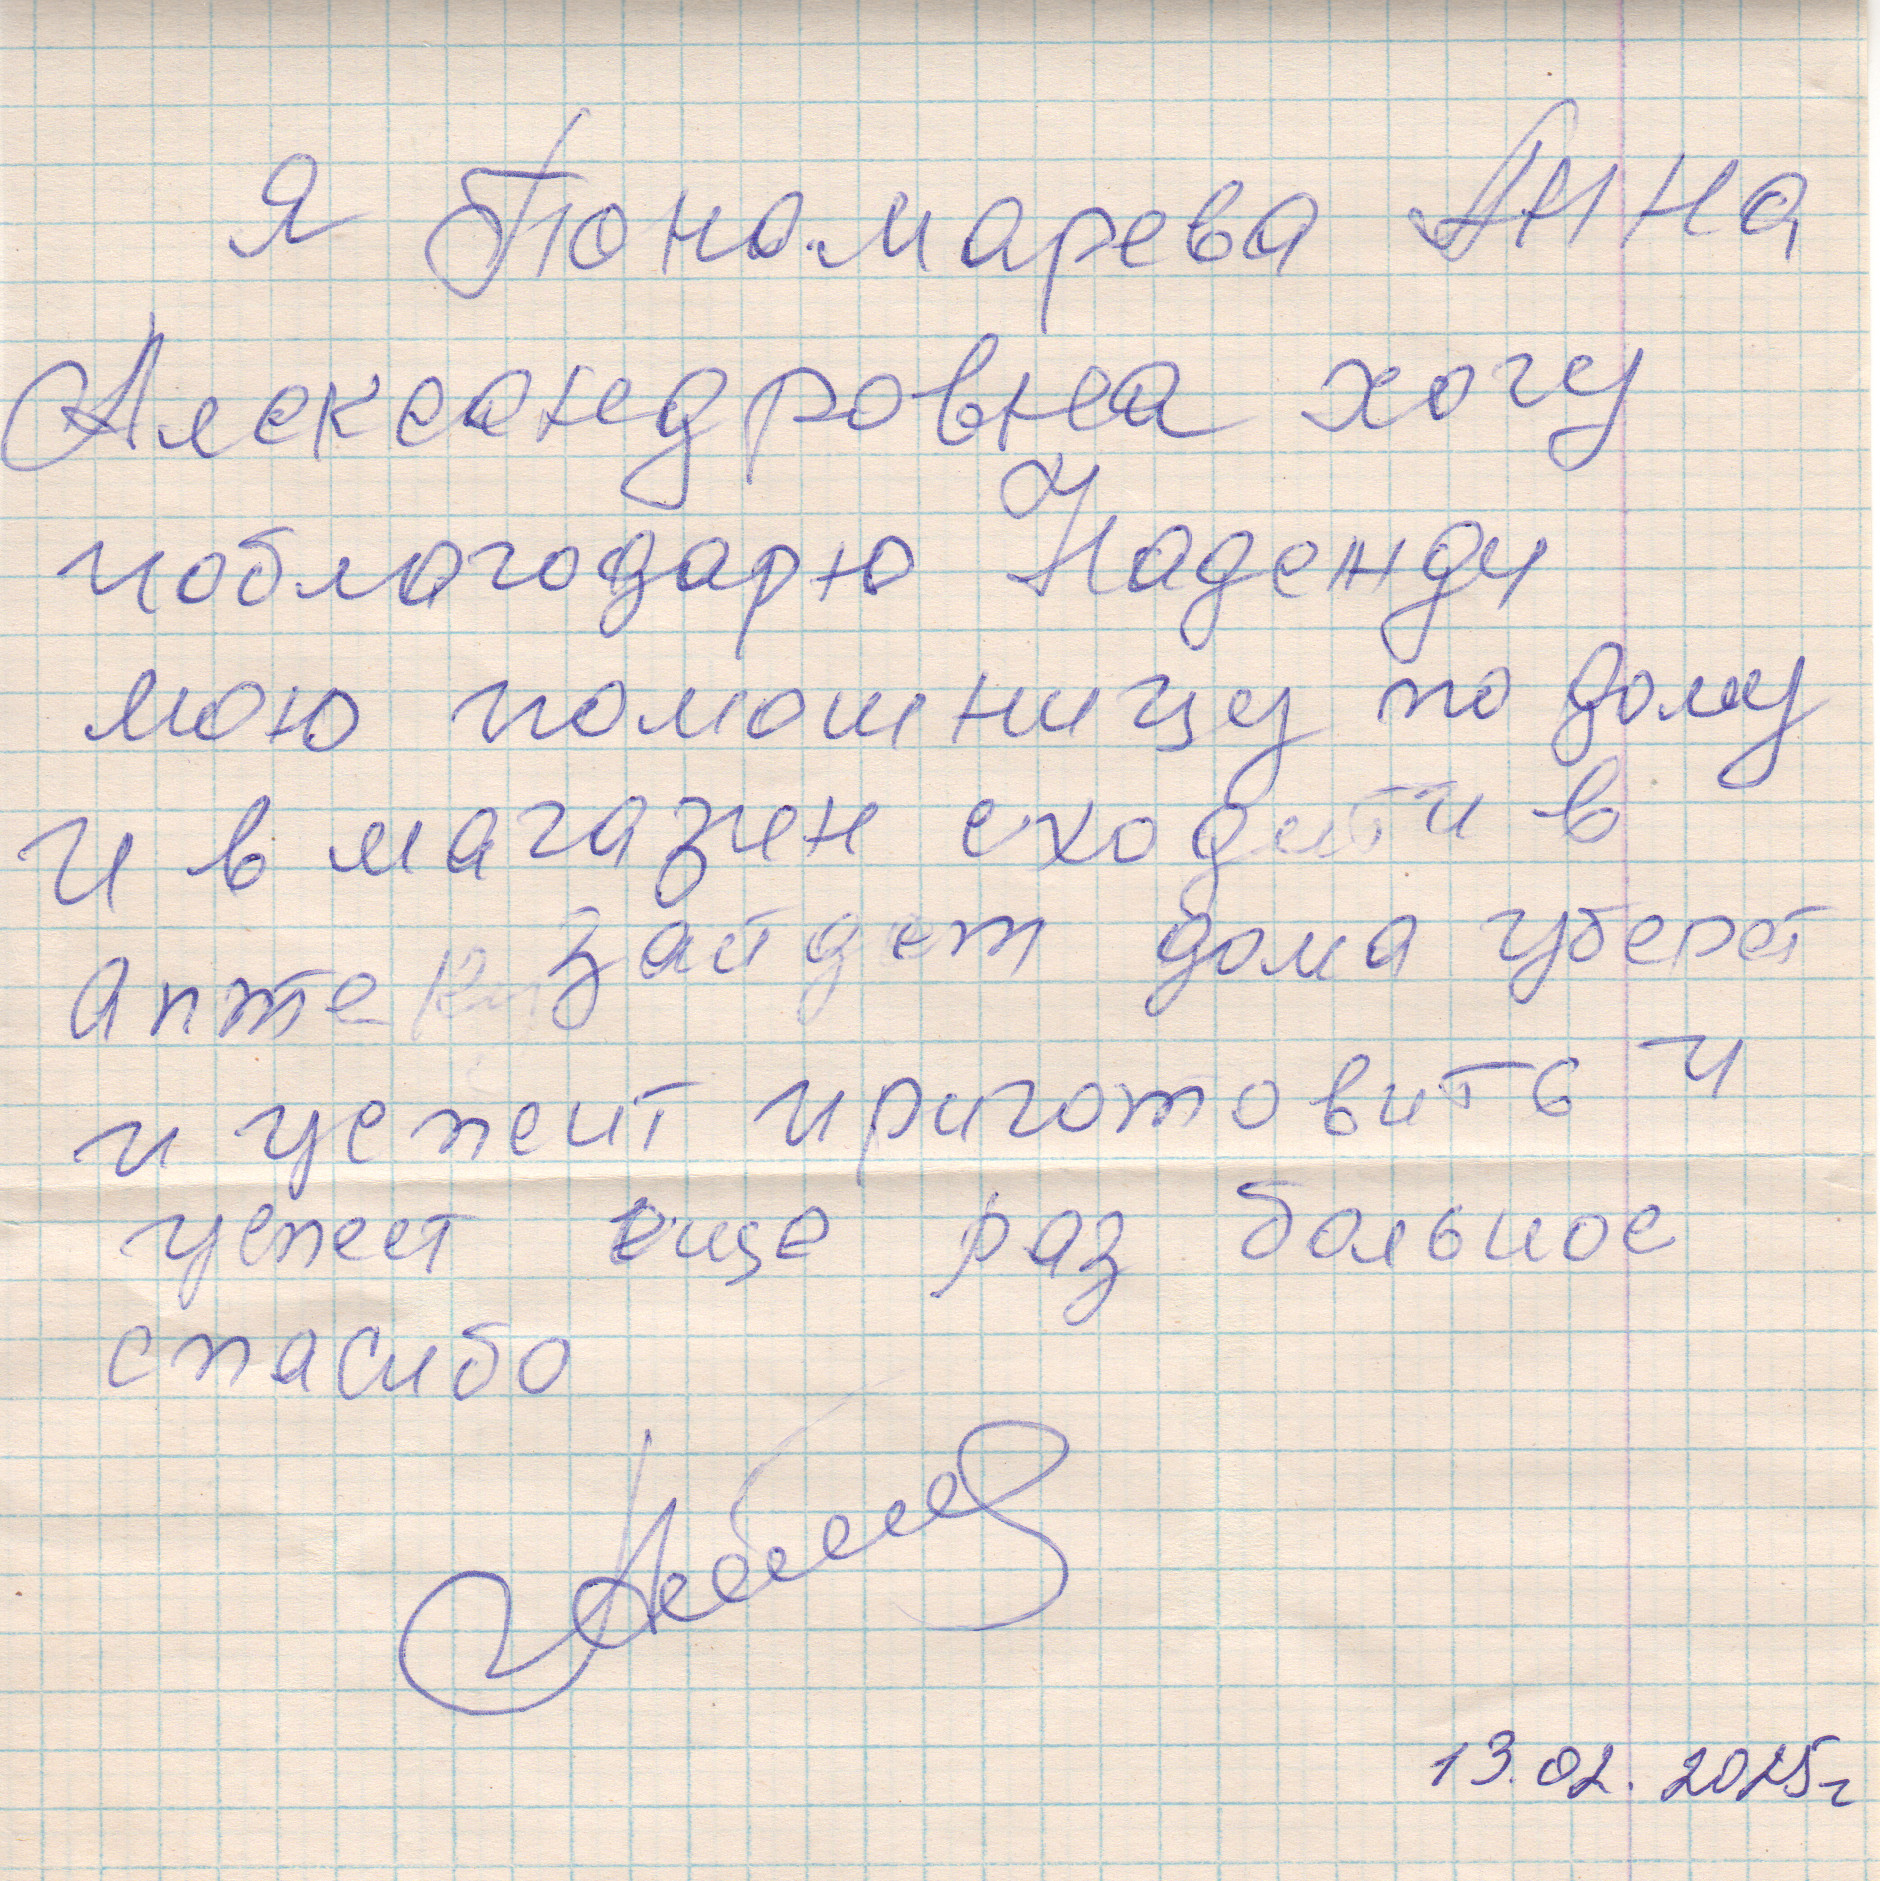 Я Пономарева Анна
Александровна хочу
поблогодарю Надежду
мою помошницу по дому
и в магазин сходити в
аптеку зайдет дома уберет
и успеит приготовить и
успеет еще раз большое
спасибо
13.02.2025г